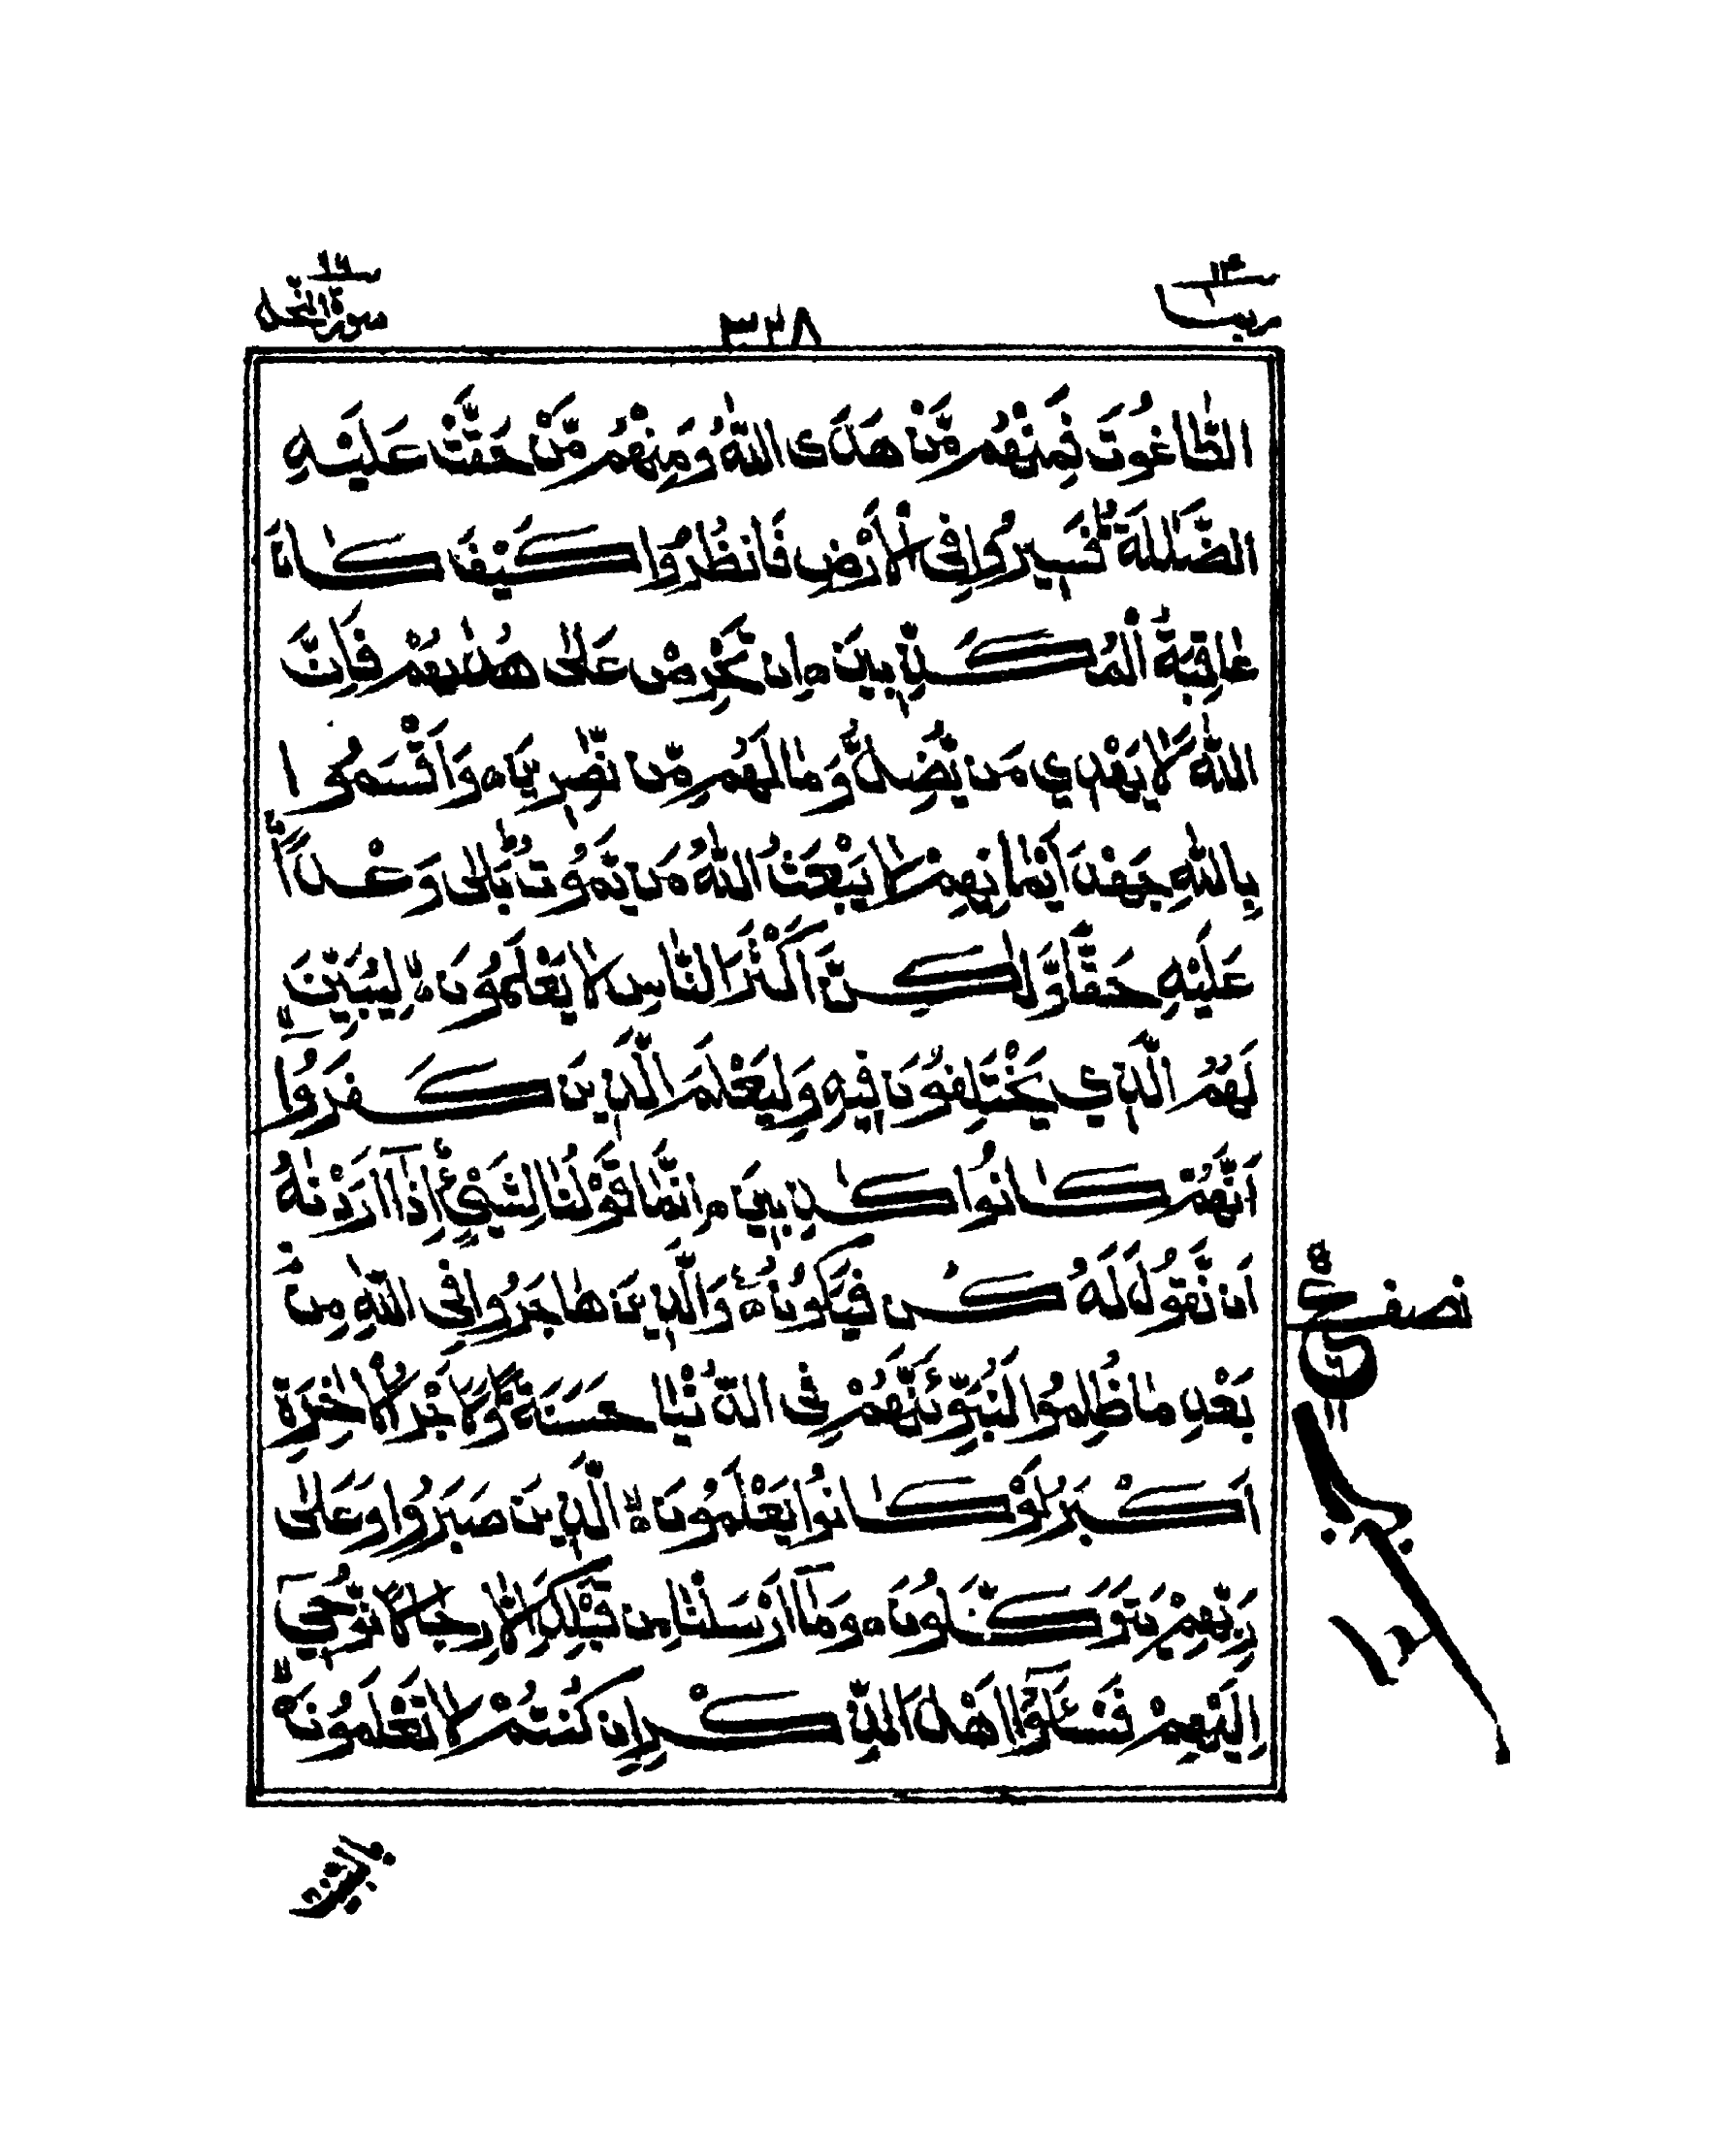 ربما ١٤
٣٣٨
سورة النحل ١٦
الطَّاغُوتَ فَمِنْهُمْ مَّنْ هَدَى اللّٰهُ وَمِنْهُمْ مَّنْ حَقَّتْ عَلَيْهِ
الضَّلٰلَةُ فَسِيرُوا فِي الْأَرْضِ فَانظُرُوا كَيْفَ كَانَ
عَاقِبَةُ الْمُكَذِّبِينَ ○ اِن تَحْرِصْ عَلٰى هُدٰىهُمْ فَاِنَّ
اللّٰهَ لَا يَهْدِي مَن يُّضِلُّ وَمَا لَهُم مِّن نّٰصِرِينَ ○ وَاَقْسَمُوا
بِاللّٰهِ جَهْدَ اَيْمَانِهِمْ لَا يَبْعَثُ اللّٰهُ مَن يَّمُوتُ بَلٰى وَعْدًا
عَلَيْهِ حَقًّا وَّلٰكِنَّ اَكْثَرَ النَّاسِ لَا يَعْلَمُونَ ○ لِيُبَيِّنَ
لَهُمُ الَّذِي يَخْتَلِفُونَ فِيهِ وَلِيَعْلَمَ الَّذِينَ كَفَرُوٓا
اَنَّهُمْ كَانُوا كٰذِبِينَ ○ اِنَّمَا قَوْلُنَا لِشَيْءٍ اِذَآ اَرَدْنٰهُ
اَن نَّقُولَ لَهُ كُن فَيَكُونُ ○ وَالَّذِينَ هَاجَرُوا فِي اللّٰهِ مِنْ
بَعْدِ مَا ظُلِمُوا لَنُبَوِّئَنَّهُمْ فِي الدُّنْيَا حَسَنَةً وَلَاَجْرُ الْاٰخِرَةِ
اَكْبَرُ لَوْ كَانُوا يَعْلَمُونَ ○ الَّذِينَ صَبَرُوا وَعَلٰى
رَبِّهِمْ يَتَوَكَّلُونَ ○ وَمَآ اَرْسَلْنَا مِن قَبْلِكَ اِلَّا رِجَالًا نُّوحِيٓ
اِلَيْهِمْ فَسْـَٔلُوٓا اَهْلَ الذِّكْرِ اِن كُنتُمْ لَا تَعْلَمُونَ
نصف ع